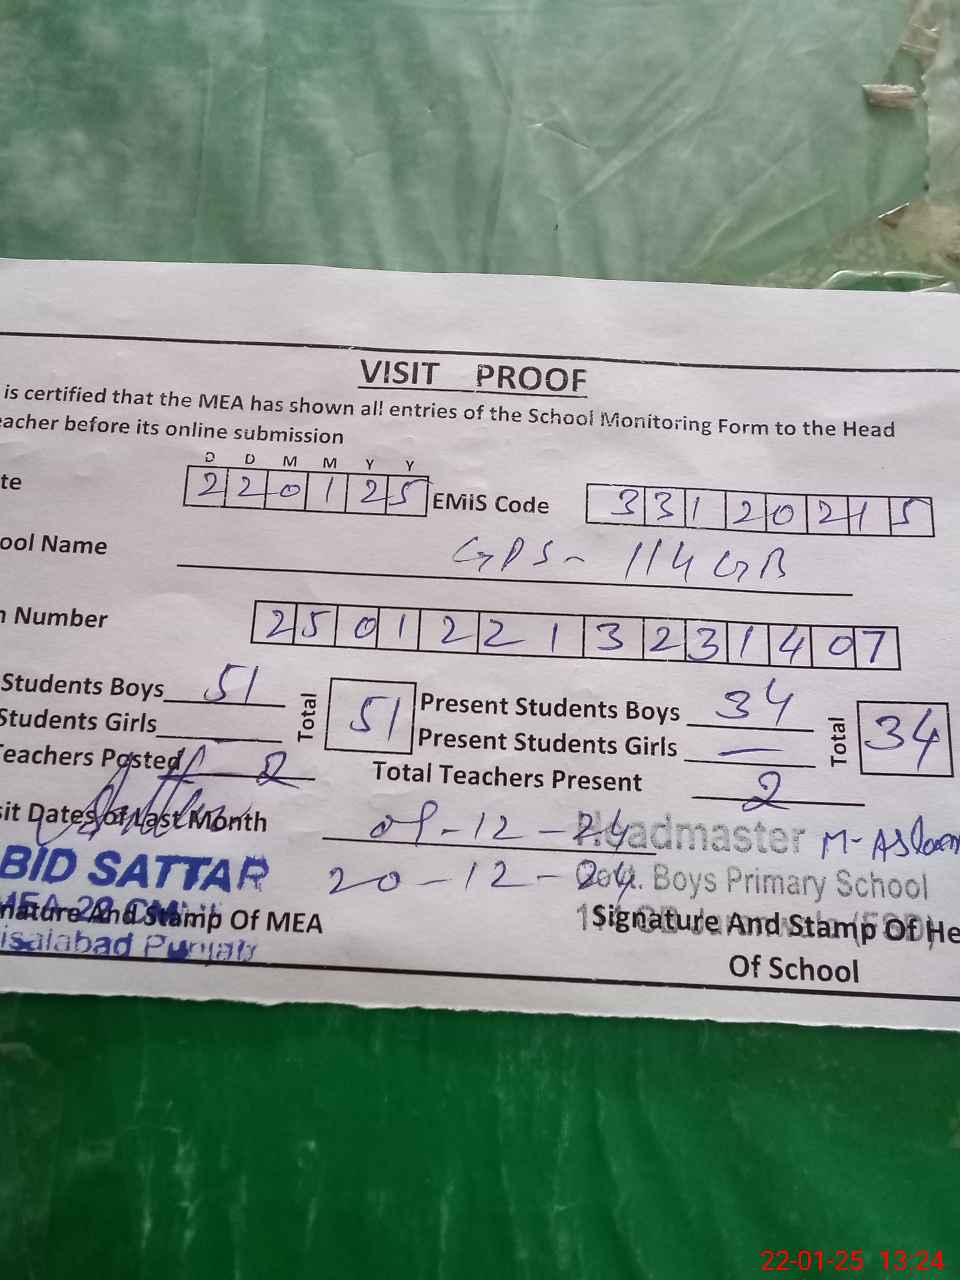 VISIT PROOF
is certified that the MEA has shown all entries of the School Monitoring Form to the Head
eacher before its online submission
D D M M Y Y
te 220125 EMIS Code 33120215
ool Name GPS- 114 GB
Number 25012213231407
Students Boys 51 Total 51 Present Students Boys 34 Total 34
Students Girls Present Students Girls —
Teachers Posted 2 Total Teachers Present 2
sit Dates of Last Month 09-12-24 Headmaster M-Aslam
BID SATTAR 20-12-24 Govt. Boys Primary School
nature And Stamp Of MEA Signature And Stamp Of He
isalabad Punjab
Of School
22-01-25 13:24